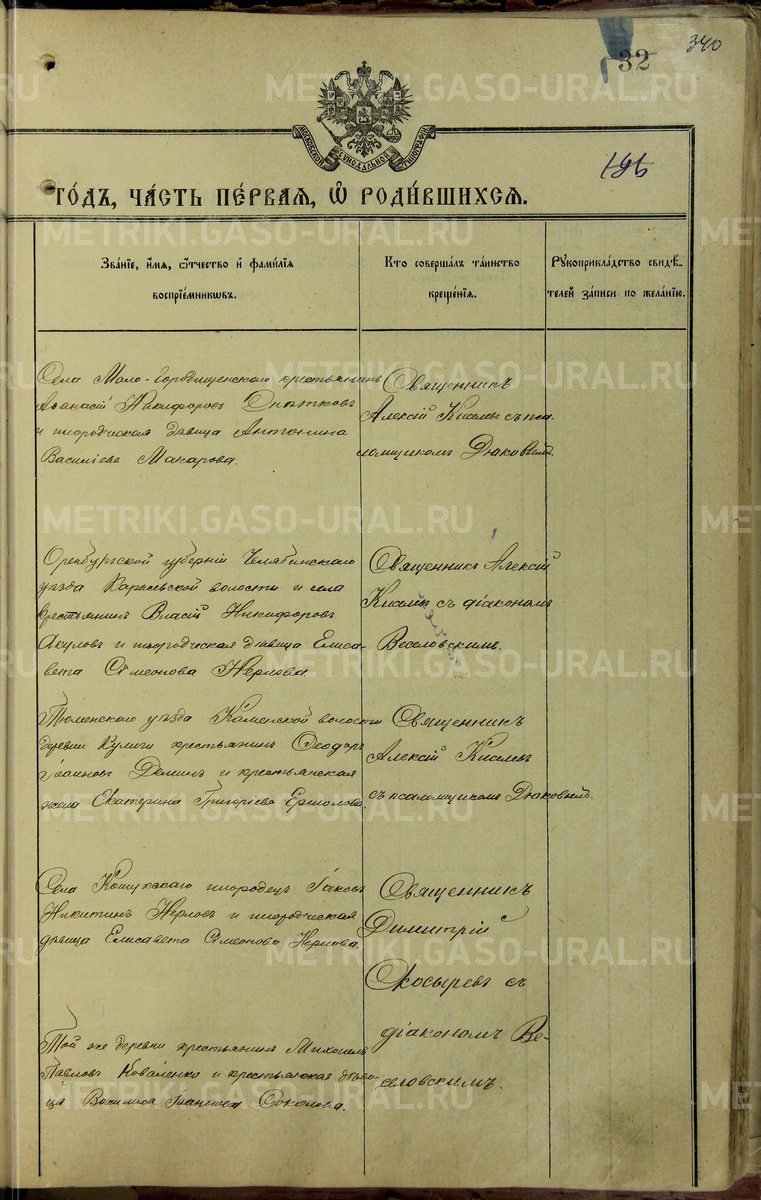 340
32
МОСКОВСКОЙ СѴНОДАЛЬНОЙ ТИПОГРАФІИ
196
ГО́ДЪ, ЧА́СТЬ ПЕ́РВАЯ, Ѡ҆ РОДИ́ВШИХСЯ.
Зва́нїе, и҆́мя, ѻ҆́тчество и҆ фами́лїя
воспрїе́мникѡвъ.
Кто̀ соверша́лъ та́инство
креще́нїя.
Рꙋкоприкла́дство свидѣ́-
телей за́писи по жела́нїю.
Села Мало-Городищенскаго крестьянинъ
Аѳанасій Никифоровъ Опятковъ
и инородческая дѣвица Антонина
Василіева Макарова.
Священникъ
Алексій Кисилевъ съ пса-
ломщикомъ Дюковымъ.
Оренбургской губерніи Челябинскаго
уѣзда Карасьской волости и села
крестьянинъ Власій Никифоровъ
Акуловъ и инородческая дѣвица Елиса-
вета Сѵмеонова Нерлова.
Священникъ Алексій
Кисилевъ съ діакономъ
Веселовскимъ.
Тюменскаго уѣзда Каменской волости
деревни Кулиги крестьянинъ Ѳеодоръ
Іоанновъ Деминъ и крестьянская
жена Екатерина Григоріева Ермолова.
Священникъ
Алексій Кисилевъ
съ псаломщикомъ Дюковымъ.
Села Кошукскаго инородецъ Іаковъ
Никитинъ Нерловъ и инородческая
дѣвица Елисавета Сѵмеонова Нерлова.
Священникъ
Димитрій
Окосыревъ съ
діакономъ Ве-
селовскимъ.
Той же деревни крестьянинъ Михаилъ
Павловъ Коваленко и крестьянская дѣви-
ца Василиса Іоаннова Соколова.
METRIKI.GASO-URAL.RU